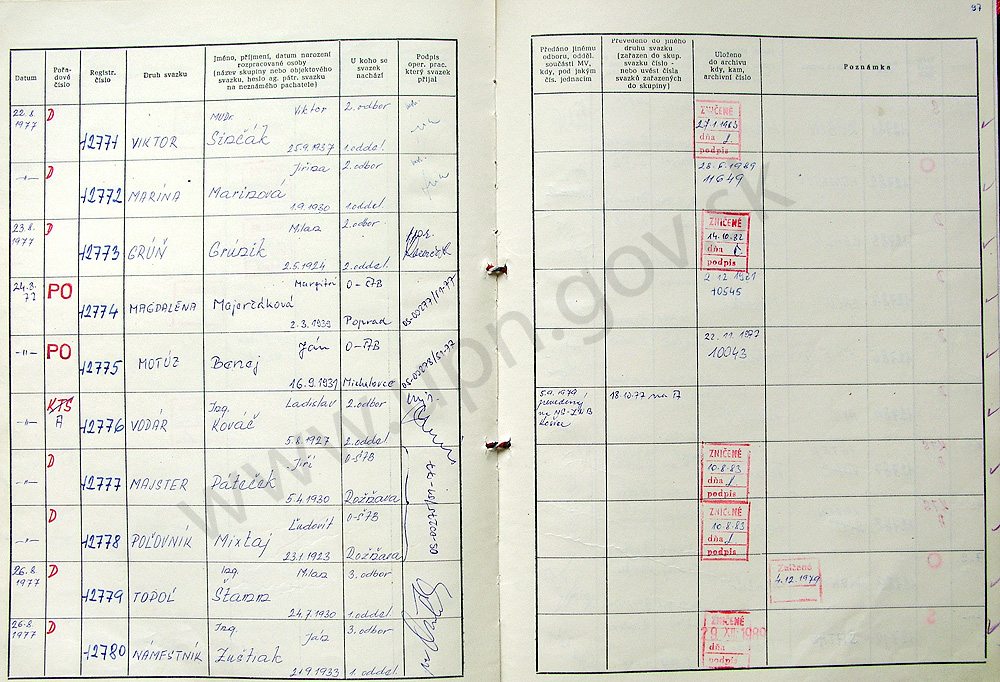 97
Datum
Pořa-
dové
číslo
Registr.
číslo
Druh svazku
Jméno, příjmení, datum narození
rozpracované osoby
(název skupiny nebo objektového
svazku, heslo ag. pátr. svazku
na neznámého pachatele)
U koho se
svazek
nachází
Podpis
oper. prac.
který svazek
přijal
Předáno jinému
odboru, odděl.
součásti MV,
kdy, pod jakým
čís. jednacím
Převedeno do jiného
druhu svazku
(zařazen do skup.
svazku číslo -
nebo uvést čísla
svazků zařazených
do skupiny)
Uloženo
do archivu
kdy, kam,
archivní číslo
Poznámka
22.8.
1977
D
12771
VIKTOR
MUDr.
Viktor
25.9.1937
2. odbor
1. oddel.
ZNIČENÉ
27.1.1983
dňa
podpis
-"-
D
12772
MARÍNA
Jiřina
Marinová
1.9.1930
2. odbor
1. oddel.
28.6.1989
11649
23.8.
1977
D
12773
GRÚŇ
Milan
Grúnik
2.5.1924
2. odbor
2. oddel.
ZNIČENÉ
14.10.82
dňa
podpis
24.8.
77
PO
12774
MAGDALÉNA
Margita
Majerčáková
2.3.1939
O-ŠTB
Poprad
2.12.1981
10545
-"-
PO
12775
MOTÚZ
Ján
Benej
16.9.1931
O-ŠTB
Michalovce
22.11.1977
10043
-"-
KTS
A
12776
VODÁR
Ing.
Ladislav
Kováč
5.8.1927
2. odbor
2. oddel.
18.10.77 na A
-"-
D
12777
MAJSTER
Jiří
Páteček
5.4.1930
O-ŠTB
Rožňava
ZNIČENÉ
10.8.83
dňa
podpis
-"-
D
12778
POĽOVNÍK
Ľudovít
Mixtaj
23.1.1923
O-ŠTB
Rožňava
ZNIČENÉ
10.8.83
dňa
podpis
26.8.
1977
D
12779
TOPOĽ
Ing.
Milan
24.7.1930
3. odbor
1. oddel.
Zničené
4.12.1979
26.8.
1977
D
12780
NÁMESTNÍK
Ing.
Ján
Zuštiak
21.9.1933
3. odbor
1. oddel.
ZNIČENÉ
29.XII.1989
dňa
podpis
www.upn.gov.sk